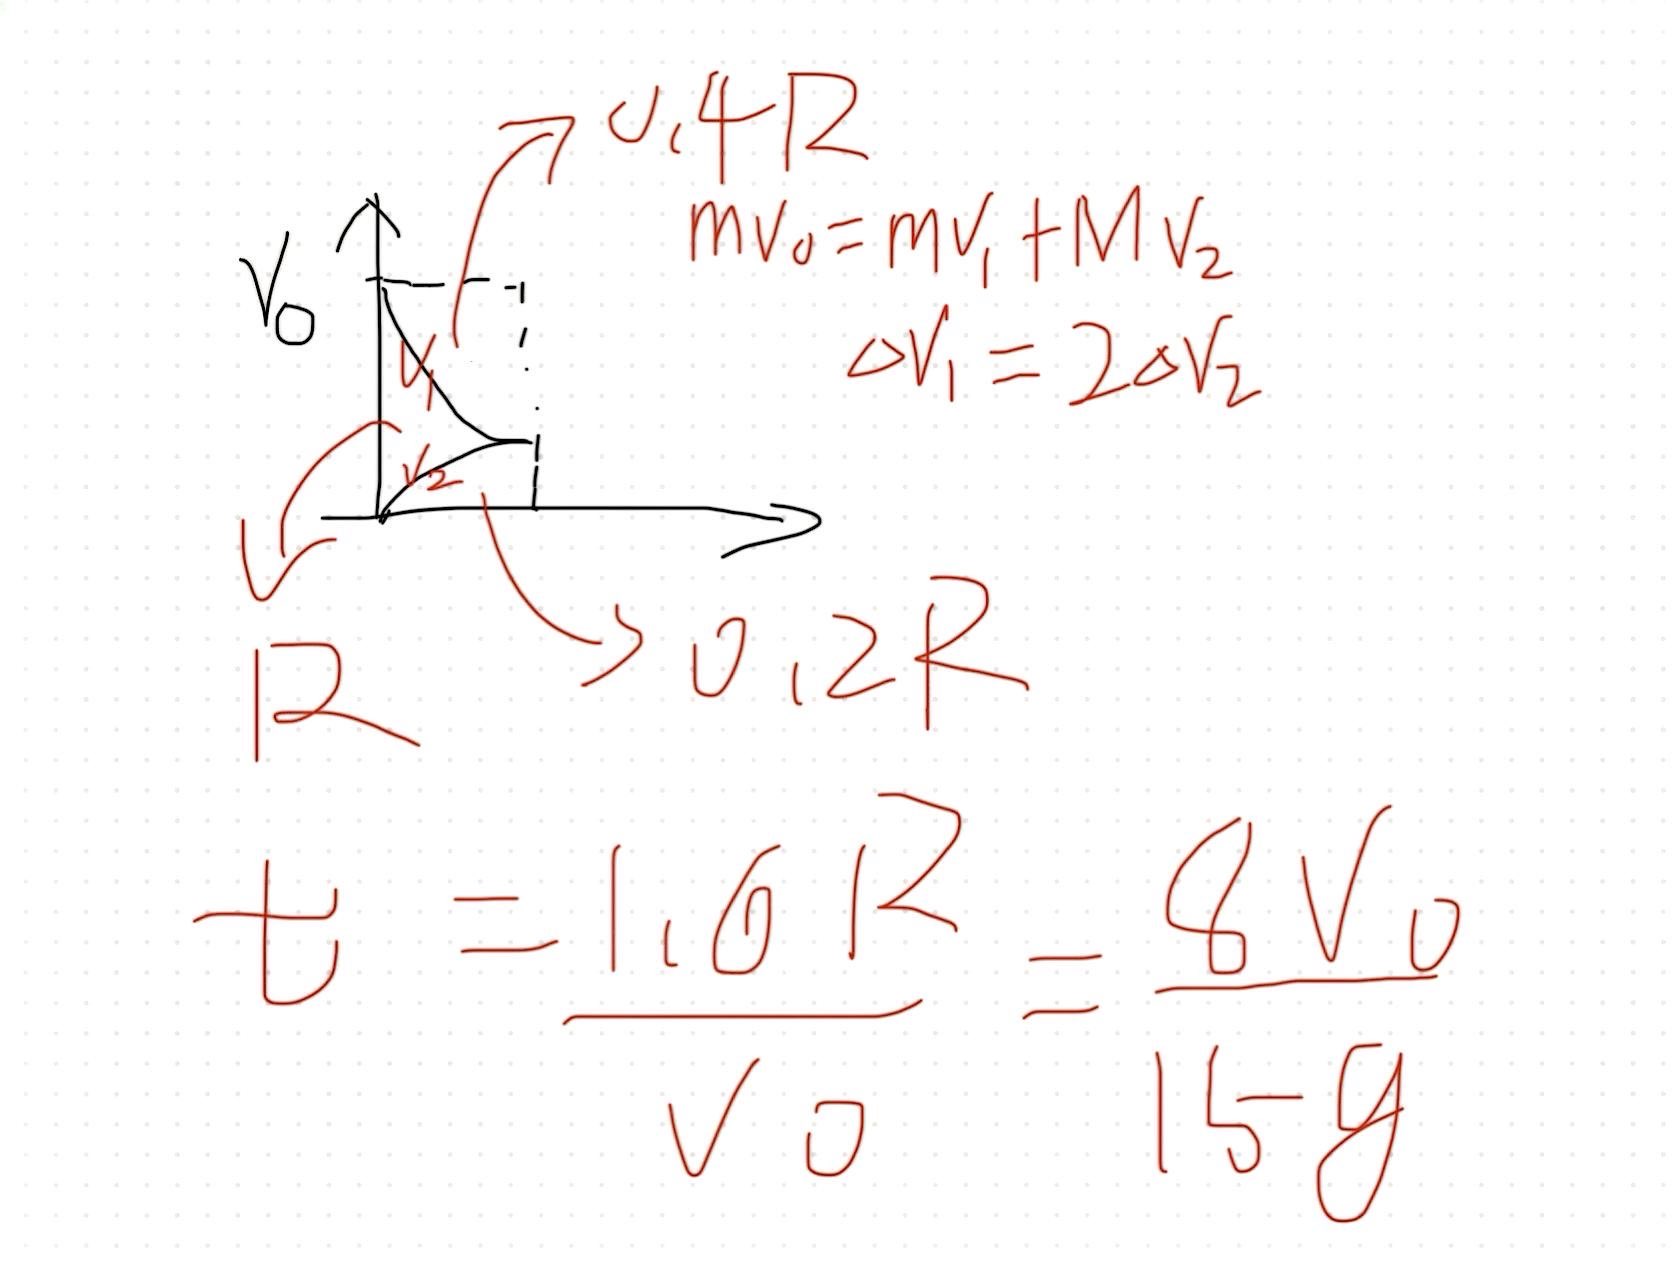 0.4R
mv₀=mv₁+Mv₂
V₀
△V₁=2△V₂
V₁
V₂
0.2R
R
t = 1.6R/V₀ = 8V₀/15g